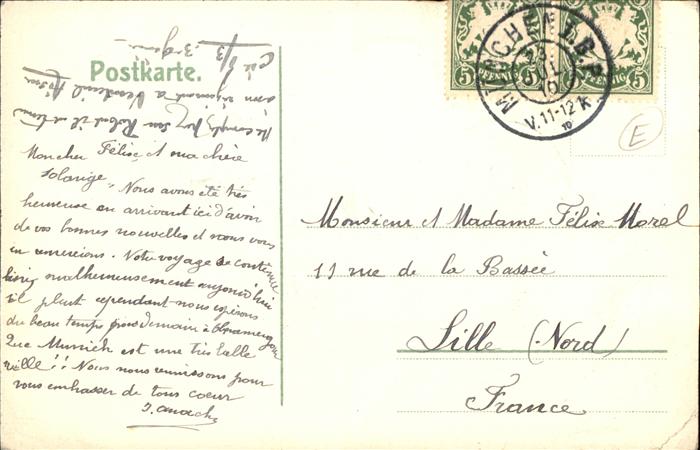 Postkarte.
5 PFENNIG 5
5 PFENNIG 5
MÜNCHEN B.B.P.
23
JUL
10
V. 11-12
Mon cher Félix et ma chère
Solange, Nous avons été très
heureuse en arrivant ici d'avoir
de vos bonnes nouvelles et nous vous
en remercions. Notre voyage se continue
bien, malheureusement aujourd'hui
il pleut cependant nous espérons
du beau temps pour demain à Oberamergau
Que Munich est une très belle
ville!! Nous nous réunissons pour
vous embrasser de tous coeur
Monsieur et Madame Félix Morel
11 rue de la Bassée
Lille (Nord)
France
E